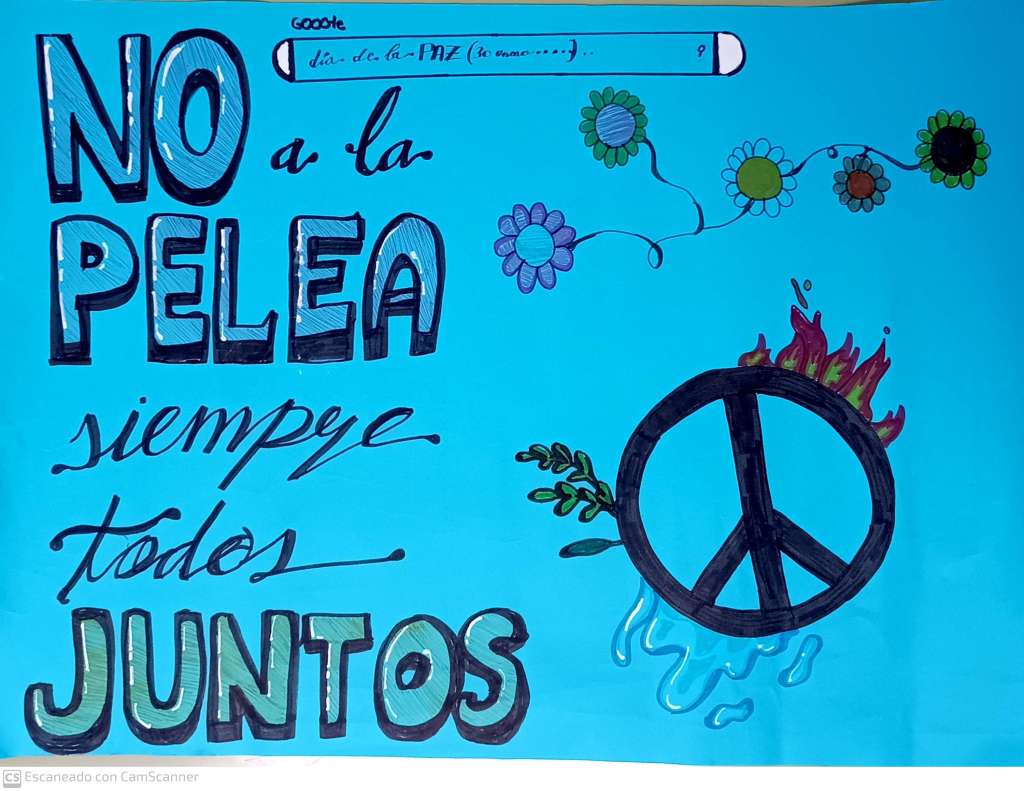 GOOGle
día de la PAZ (30 enero.....)..
NO a la
PELEA
siempre
todos
JUNTOS
CS Escaneado con CamScanner